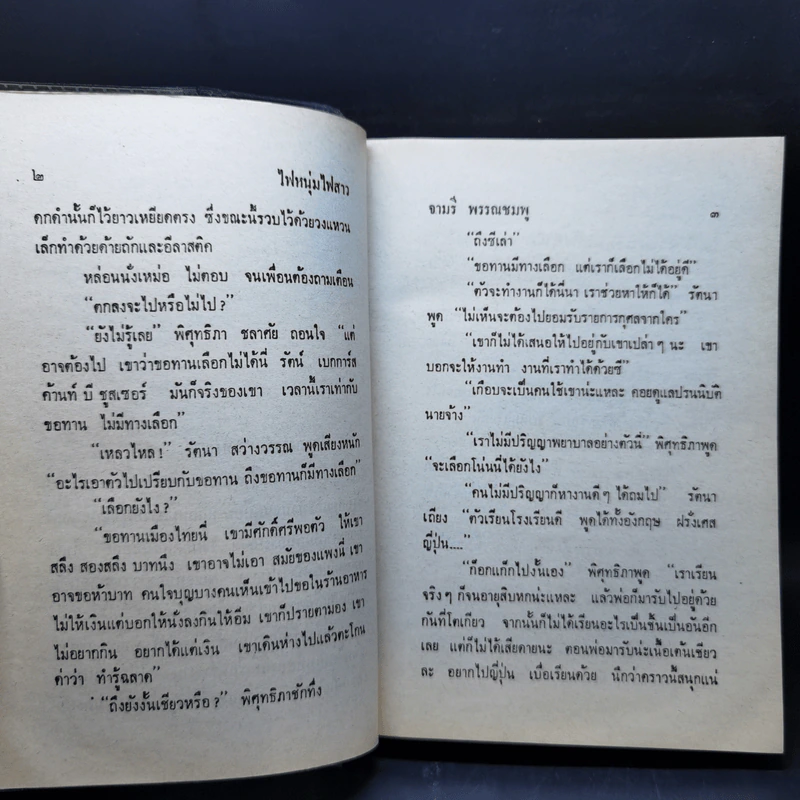 ๒ ไฟหนุ่มไฟสาว
ดกดำนั้นก็ไว้ยาวเหยียดตรง ซึ่งขณะนี้รวบไว้ด้วยวงแหวน
เล็กทำด้วยด้ายถักและอีลาสติค
หล่อนนั่งเหม่อ ไม่ตอบ จนเพื่อนต้องถามเตือน
“ตกลงจะไปหรือไม่ไป?”
“ยังไม่รู้เลย” พิศุทธิภา ชลาศัย ถอนใจ “แต่
อาจต้องไป เขาว่าขอทานเลือกไม่ได้นี่ รัตน์ เบกการ์ส
ค้านท์ บี ชูสเซอร์ มันก็จริงของเขา เวลานี้เราเท่ากับ
ขอทาน ไม่มีทางเลือก”
“เหลวไหล!” รัตนา สว่างวรรณ พูดเสียงหนัก
“อะไรเอาตัวไปเปรียบกับขอทาน ถึงขอทานก็มีทางเลือก”
“เลือกยังไง?”
“ขอทานเมืองไทยนี่ เขามีศักดิ์ศรีพอตัว ให้เขา
สลึง สองสลึง บาทนึง เขาอาจไม่เอา สมัยของแพงนี่ เขา
อาจขอห้าบาท คนใจบุญบางคนเห็นเข้าไปขอในร้านอาหาร
ไม่ให้เงินแต่บอกให้นั่งลงกินให้อิ่ม เขาก็ปรายตามอง เขา
ไม่อยากกิน อยากได้แต่เงิน เขาเดินห่างไปแล้วตะโกน
ด่าว่า ทำรู้ฉลาด”
“ถึงยังงั้นเชียวหรือ?” พิศุทธิภาชักทึ่ง
จามรี พรรณชมพู ๓
“ถึงซีเล่า”
“ขอทานมีทางเลือก แต่เราก็เลือกไม่ได้อยู่ดี”
“ตัวจะทำงานก็ได้นี่นา เราช่วยหาให้ก็ได้” รัตนา
พูด “ไม่เห็นจะต้องไปยอมรับรายการกุศลจากใคร”
“เขาก็ไม่ได้เสนอให้ไปอยู่กับเขาเปล่าๆ นะ เขา
บอกจะให้งานทำ งานที่เราทำได้ด้วยซี”
“เกือบจะเป็นคนใช้เขาน่ะแหละ คอยดูแลปรนนิบัติ
นายจ้าง”
“เราไม่มีปริญญาพยาบาลอย่างตัวนี่” พิศุทธิภาพูด
“จะเลือกโน่นนี่ได้ยังไง”
“คนไม่มีปริญญาก็หางานดีๆ ได้ถมไป” รัตนา
เถียง “ตัวเรียนโรงเรียนดี พูดได้ทั้งอังกฤษ ฝรั่งเศส
ญี่ปุ่น....”
“ก็อกแก็กไปงั้นเอง” พิศุทธิภาพูด “เราเรียน
จริงๆ ก็จนอายุสิบหกน่ะแหละ แล้วพ่อก็มารับไปอยู่ด้วย
กันที่โตเกียว จากนั้นก็ไม่ได้เรียนอะไรเป็นชิ้นเป็นอันอีก
เลย แต่ก็ไม่ได้เสียดายนะ ตอนพ่อมารับน่ะเนื้อเต้นเชียว
ละ อยากไปญี่ปุ่น เบื่อเรียนด้วย นึกว่าคราวนี้สนุกแน่